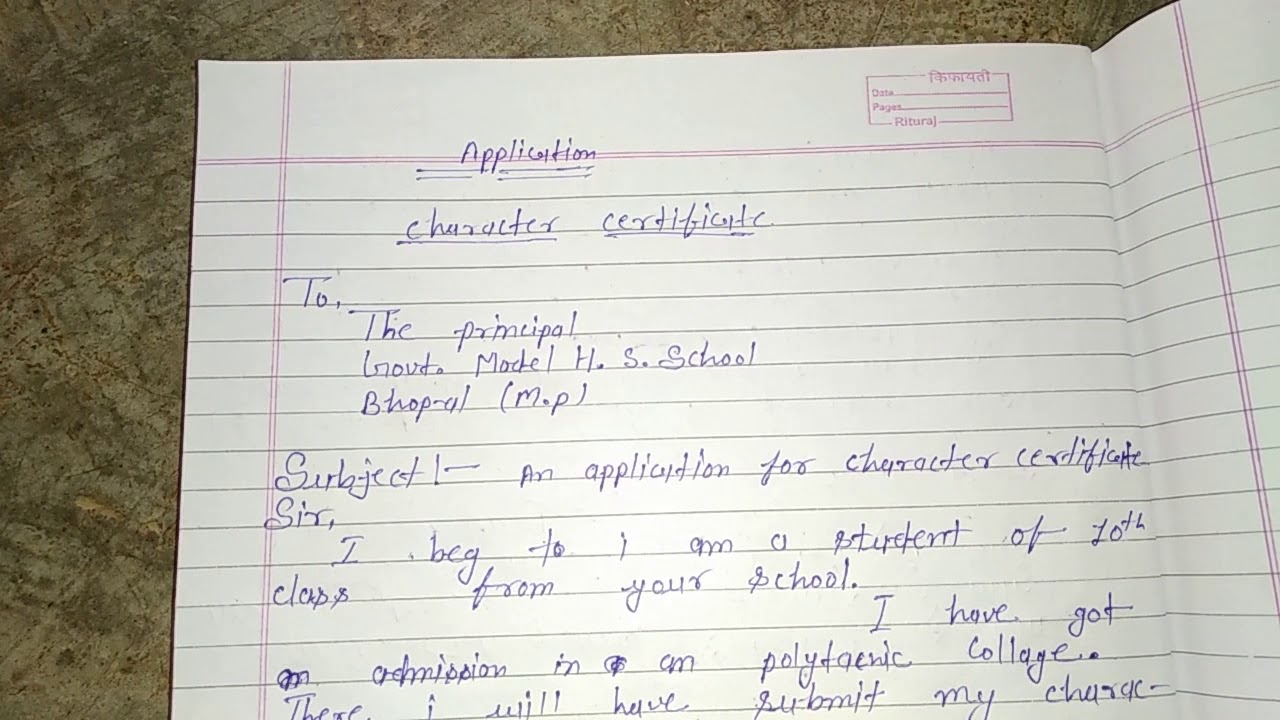 किफायती
Date
Pages
Rituraj
Application
character certificate
To,
The principal
Govt. Model H. S. School
Bhopal (M.p)
Subject!- An application for character certificate
Sir,
I beg to i am a student of 10th
class from your school.
I have got
admission in an polytaenic collage.
There i will have submit my charac-